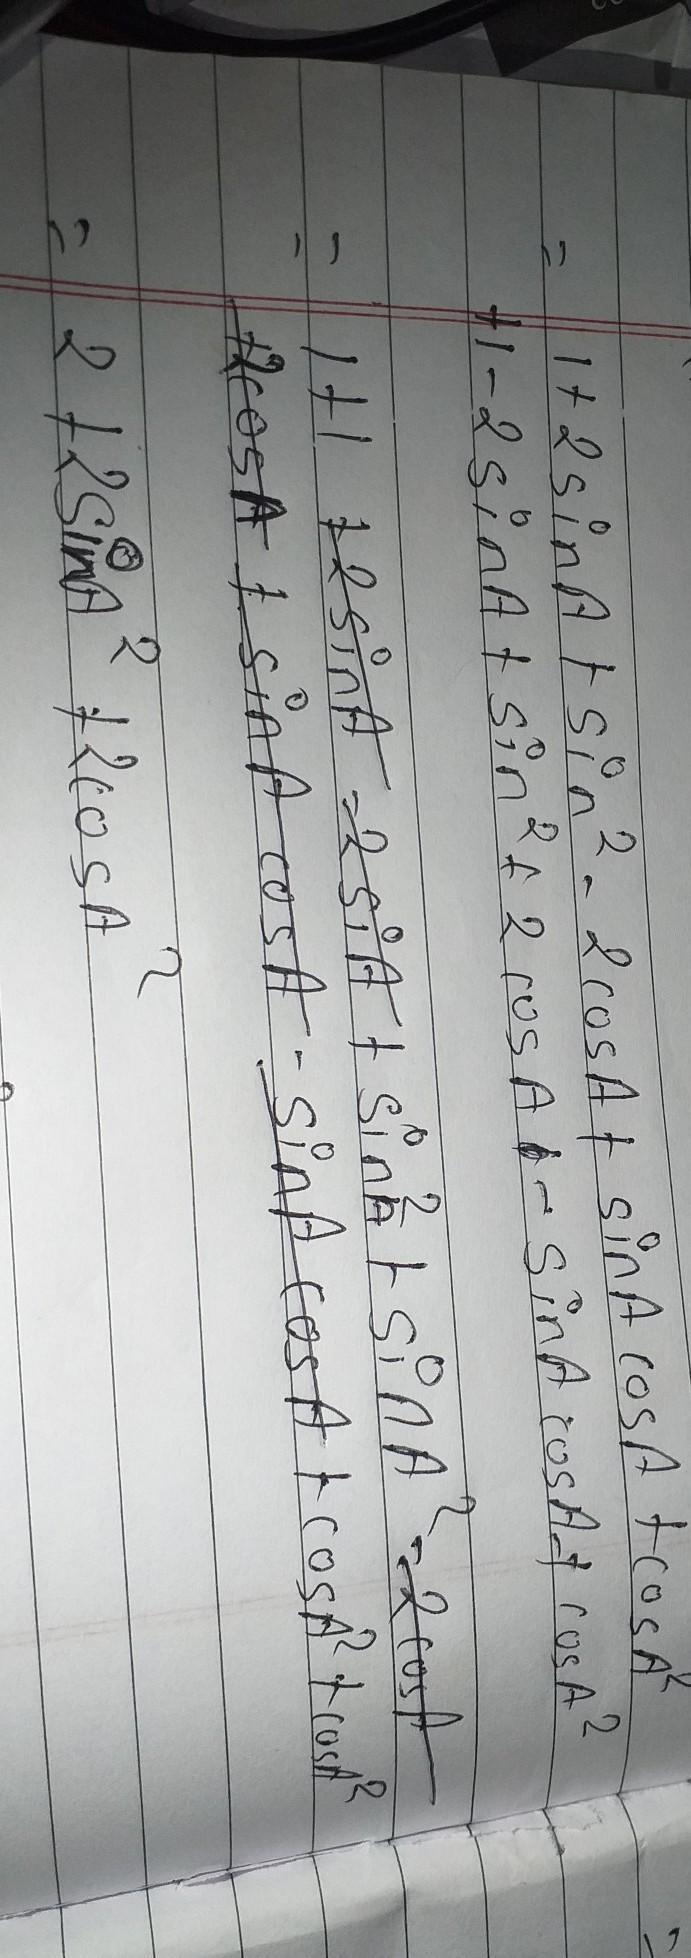 = 1 + 2 sinA + sin² - 2cosA + sinA cosA + cosA²
+1 - 2sinA + sin² + 2 cosA - sinA cosA + cosA²
= 1+1 +2sinA - 2siA + sinA² + sinA² - 2cosA
= +2cosA + sinA cosA - sinA cosA + cosA² + cosA²
= 2 + 2sinA² + 2cosA²